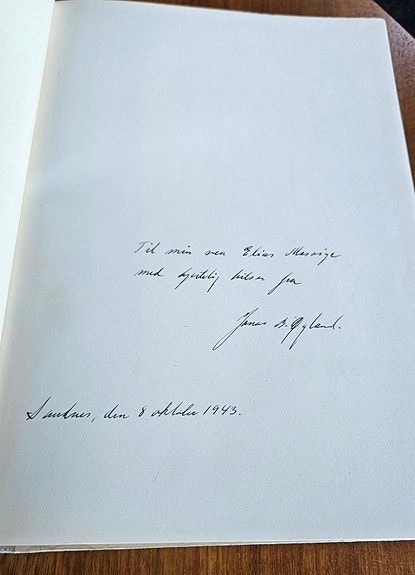 Til min ven Elias
med hjertelig hilsen fra
Jonas B. Øgland.
Sandnes, den 8 oktober 1943.